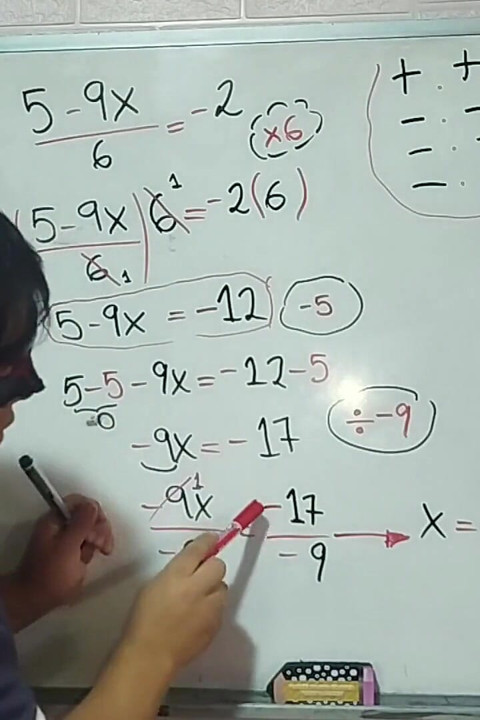 (5-9x)/6 = -2 ×6
(5-9x/6)6 = -2(6)
1
1
5-9x = -12 -5
5-5-9x = -12-5
0
-9x = -17 ÷-9
-9x -17/-9 → x =
1
+ · +
- · -
- ·
- ·